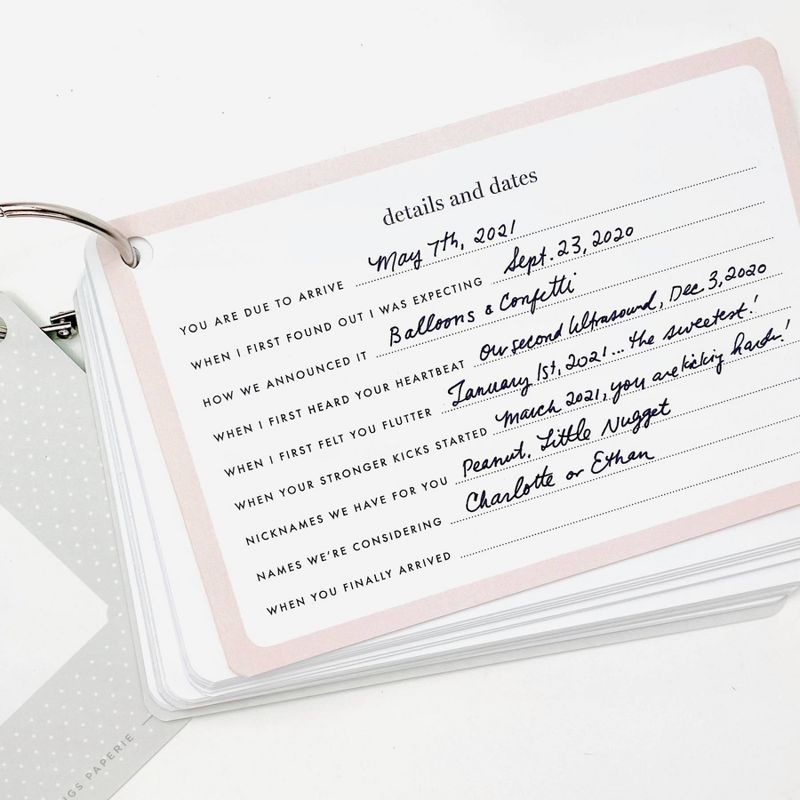 details and dates
YOU ARE DUE TO ARRIVE May 7th, 2021
WHEN I FIRST FOUND OUT I WAS EXPECTING Sept. 23, 2020
HOW WE ANNOUNCED IT Balloons & Confetti
WHEN I FIRST HEARD YOUR HEARTBEAT Our second Ultrasound, Dec 3, 2020
WHEN I FIRST FELT YOU FLUTTER January 1st, 2021... the sweetest!
WHEN YOUR STRONGER KICKS STARTED March 2021, you are kicking hard!
NICKNAMES WE HAVE FOR YOU Peanut, Little Nugget
NAMES WE'RE CONSIDERING Charlotte or Ethan
WHEN YOU FINALLY ARRIVED
NGS PAPERIE